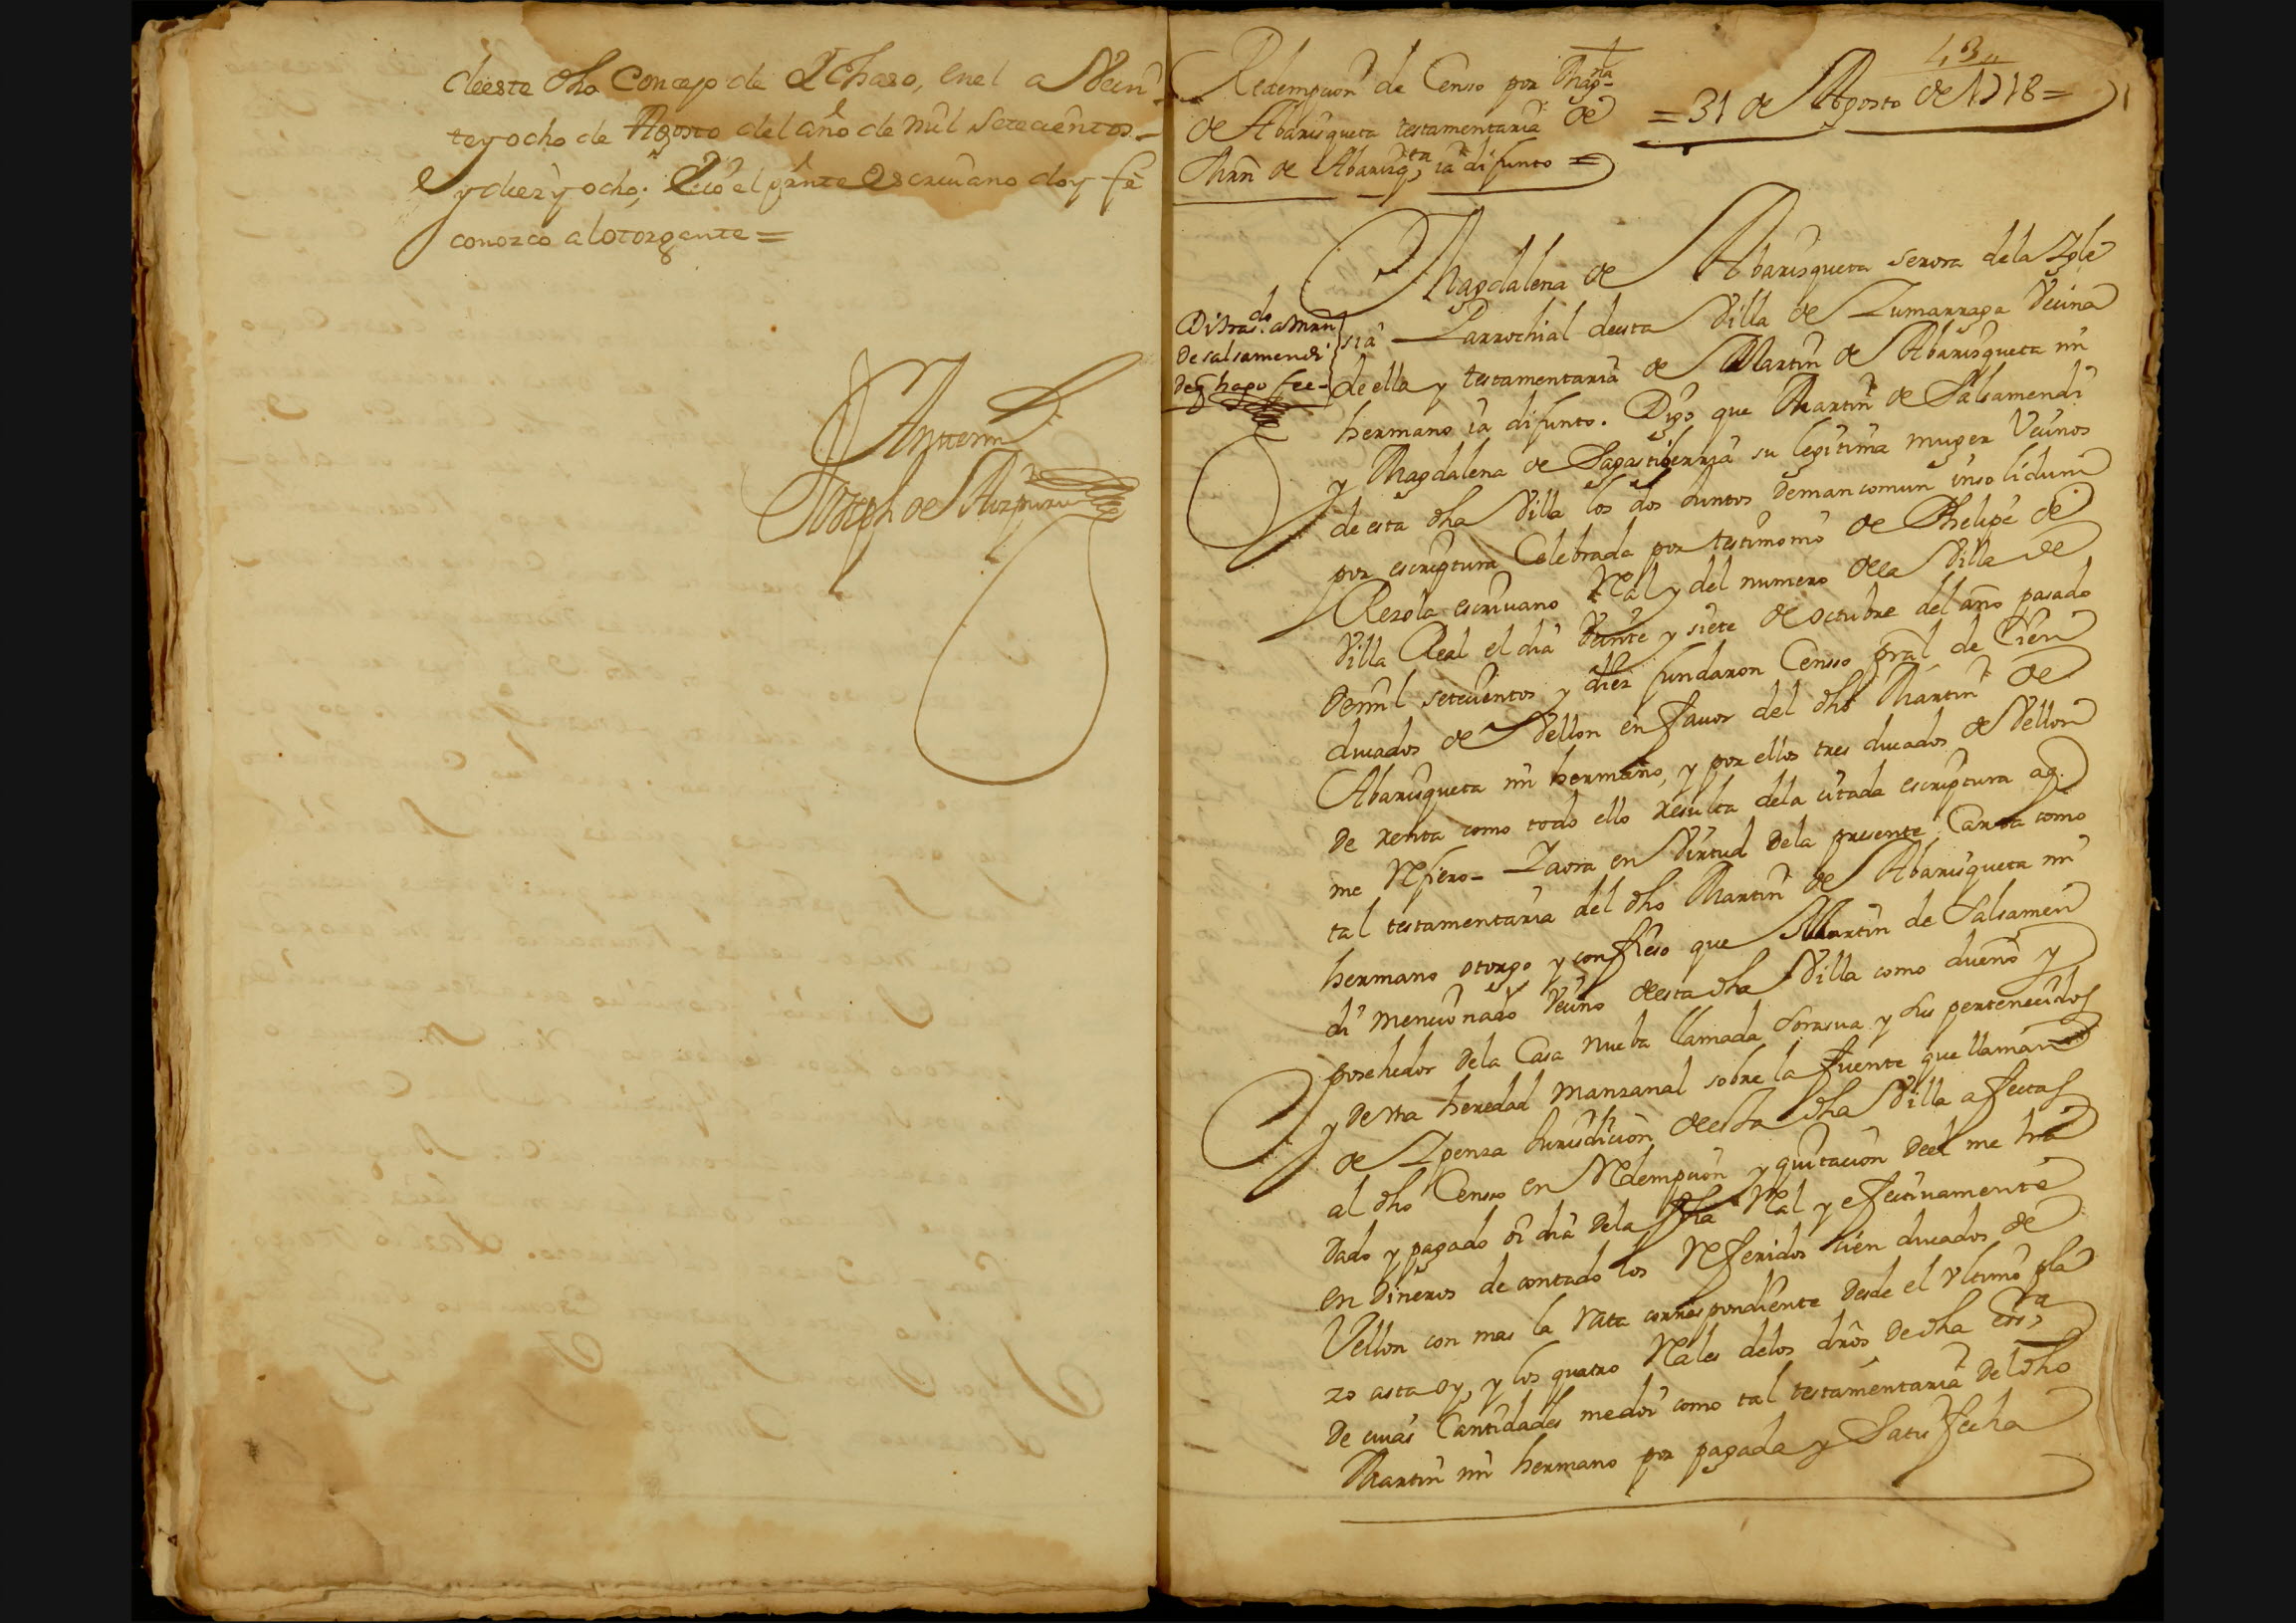 deeste dho Concejo de Ychaso, enel a Vein-
teyocho de Agosto del año de mil Setecientos-
y diez y ocho; E yo el pnte Escriuano doy fé
conozco alotorgante =
Antemi
Joseph de Aizpuru
43
Redempcion de Censo por Mag.na
de Abarisqueta testamentaria de
Mrn de Abarizq.ta ia difunto =
= 31 de Agosto de 1718 =
Magdalena de Abarisqueta serora dela Igle
sia Parrochial deesta Villa de Zumarraga Vecina
Di tras.do a Mrn
de Salsamendi
de q hago fee-
de ella y testamentaria de Martin de Abarisqueta mi
hermano ia difunto. Digo que Martin de Salsamendi
y Magdalena de Sagastiberria su legitima muger Vecinos
de esta dha Villa los dos Juntos demancomun insolidum
por escriptura Celebrada por testimonio de Phelipe de
Rezola escriuano Real y del numero dela Villa de
Villa Real el dia Veinte y siete de octubre del año pasado
demil setecientos y diez fundaron Censso pral de Cien
ducados de Vellon en fauor del dho Martin de
Abarisqueta mi hermano, y por ellos tres ducados de Vellon
de renta como todo ello resulta dela citada escriptura aq.
me Refiero- Iaora en Virtud dela presente Carta como
tal testamentaria del dho Martin de Abarisqueta mi
hermano otorgo y confieso que Martin de Salsamen
di mencionado Vecino deesta dha Villa como dueño y
posehedor dela Casa nueba llamada Sorasua y sus pertenecidos
y de otra heredad manzanal sobre la fuente que llaman
de Ipenza Jurisdicion deesta dha Villa afectas
al dho Censo en Redempcion y quitacion deel me ha
dado y pagado oi dia dela fha Real y efectiuamente
en dineros de contado los Referidos cien ducados de
Vellon con mas la rata correspondiente desde el vltimo pla
zo asta oy, y los quatro Rales delos dros de dha ess.ra
de cuias Cantidades medoi como tal testamentaria del dho
Martin mi hermano por pagada y Satisfecha